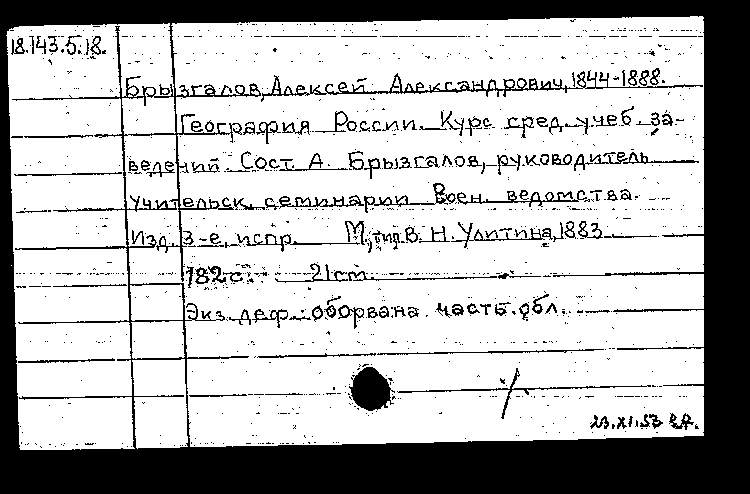 18.143.5.18.
Брызгалов, Алексей Александрович, 1844-1888.
География России. Курс сред. учеб. за-
ведений. Сост. А. Брызгалов, руководитель
учительск. семинарии Воен. ведомства.
Изд. 3-е, испр. М., тип. В. Н. Улитина, 1883.
182 с. 21 cm.
Экз. деф.: оборвана часть обл.
23.XI.53